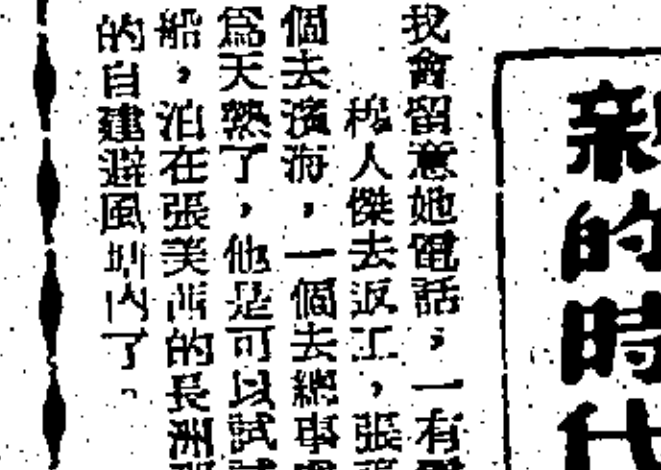 新的時代
我會留意她電話，一有
程人傑去返工，張
個去濱海，一個去總
為天熱了，他是可以試
船，泊在張美茜的長洲
的自建避風塘內了。